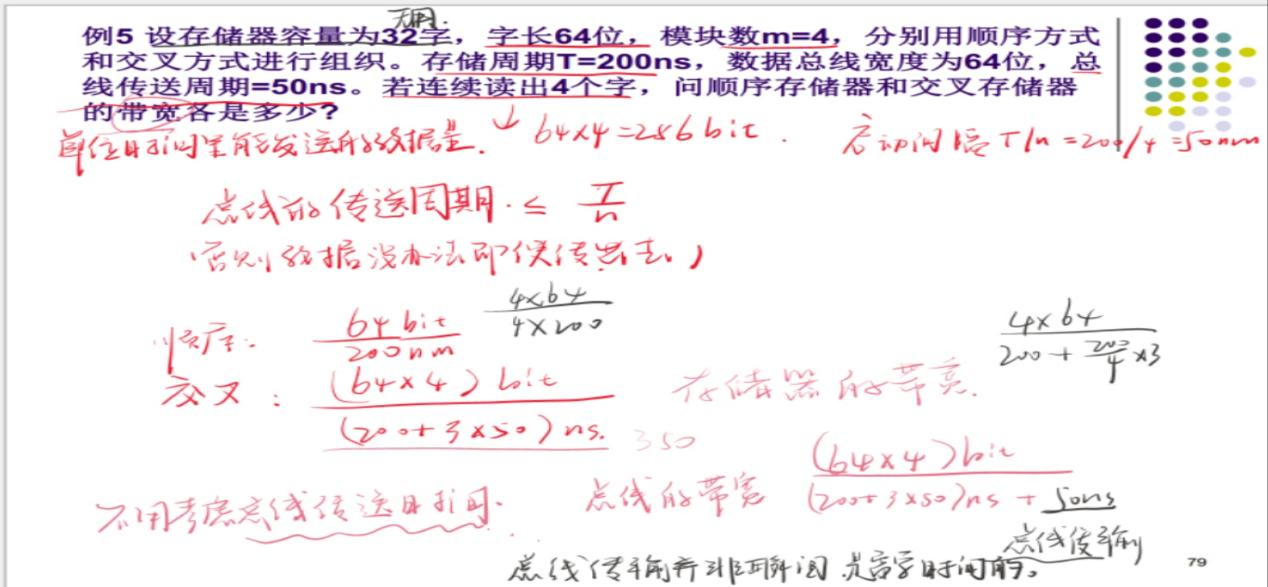 无用.
例5 设存储器容量为32字，字长64位，模块数m=4，分别用顺序方式
和交叉方式进行组织。存储周期T=200ns，数据总线宽度为64位，总
线传送周期=50ns。若连续读出4个字，问顺序存储器和交叉存储器
的带宽各是多少?
单位时间里能发送的数据是. ↓ 64×4=286bit. 启动间隔T/n=200/4=50nm
总线的传送周期.≤ T/n
(否则数据没办法即使传出去.)
顺序: 64bit/200nm 4×64/4×200 4×64/200+200/4×3
交叉: (64×4)bit/(200+3×50)ns. 350 存储器的带宽.
不用考虑总线传送时间. 总线的带宽 (64×4)bit/(200+3×50)ns+50ns
总线传输
总线传输并非瞬间,是需要时间的。
79